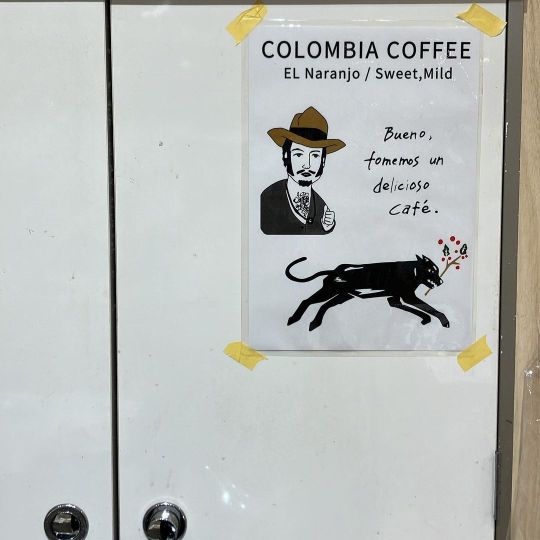 COLOMBIA COFFEE
EL Naranjo / Sweet,Mild
Bueno,
fomemos un
delicioso
Café.